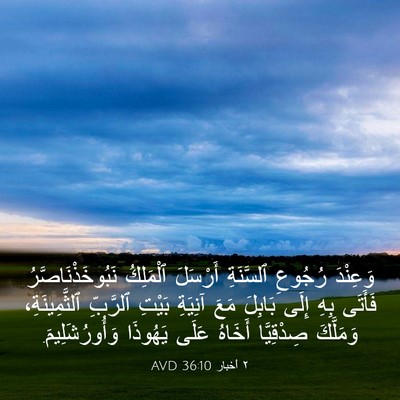 وَعِنْدَ رُجُوعِ ٱلسَّنَةِ أَرْسَلَ ٱلْمَلِكُ نَبُوخَذْنَاصَّرُ
فَأَتَى بِهِ إِلَى بَابِلَ مَعَ آنِيَةِ بَيْتِ ٱلرَّبِّ ٱلثَّمِينَةِ،
وَمَلَّكَ صِدْقِيَّا أَخَاهُ عَلَى يَهُوذَا وَأُورُشَلِيمَ.
٢ أخبار 36:10 AVD